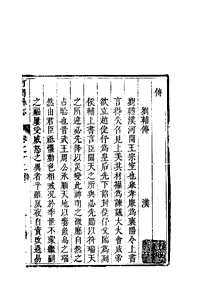 傳
劉輔傳 漢
劉輔漢河間王宗室也舉孝廉為襄賁令上書
言得失召見上美其材擢為諫議大夫會成帝
欲立趙倢伃為皇后先下詔封倢伃父臨為列
侯輔上書言臣聞天之所與必先賜以符瑞天
之所違必先降以災變此神明之徵應自然之
占驗也昔武王周公承順天地以饗魚鳥之瑞
然由君臣祗懼動色相戒況於季世不蒙繼嗣
之福屢受威怒之異者乎雖夙夜自責改過易